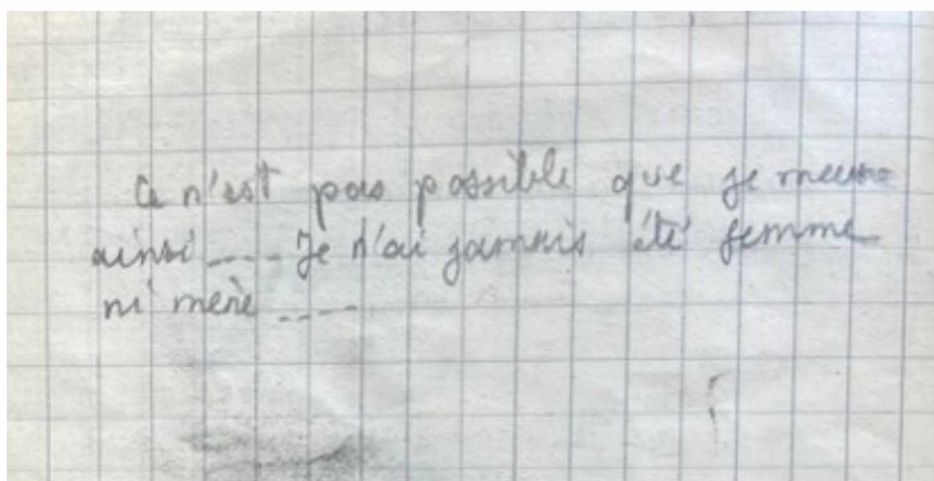 Ce n'est pas possible que je meure
ainsi .... Je n'ai jamais été femme
ni mère ....